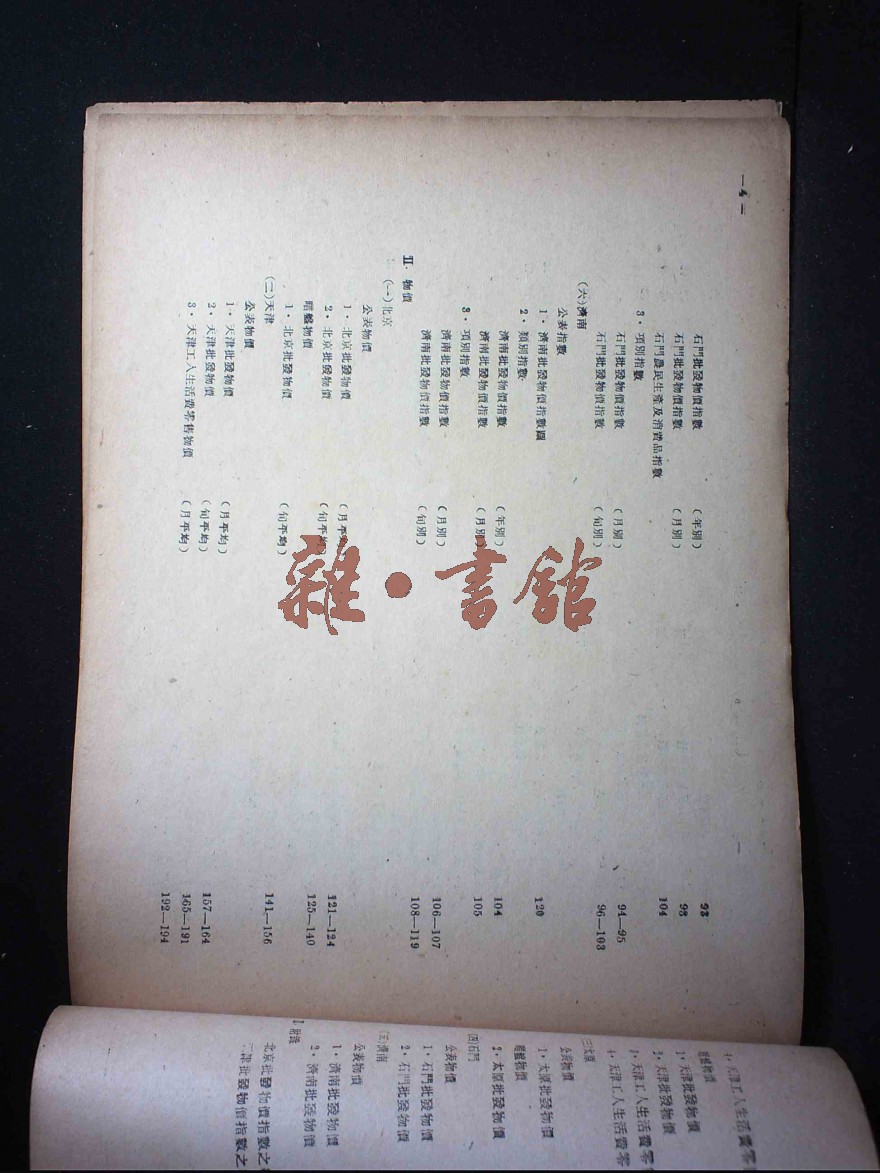 —4—
石門批發物價指數 (年別) 93
石門批發物價指數 (月別) 93
石門農民生產及消費品指數 104
3．項別指數
石門批發物價指數 (月別) 94—95
石門批發物價指數 (旬別) 96—103
(六)濟南
公表指數
1．濟南批發物價指數圖 120
2．類別指數
濟南批發物價指數 (年別) 104
濟南批發物價指數 (月別) 105
3．項別指數
濟南批發物價指數 (月別) 106—107
濟南批發物價指數 (旬別) 108—119
II．物價
(一)北京
公表物價
1．北京批發物價 (月平均) 121—124
2．北京批發物價 (旬平均) 125—140
暗盤物價
1．北京批發物價 (旬平均) 141—156
(二)天津
公表物價
1．天津批發物價 (月平均) 157—164
2．天津批發物價 (旬平均) 165—191
3．天津工人生活費零售物價 (月平均) 192—194
雜·書館
4．天津工人生活費零
暗盤物價
1．天津批發物價
2．天津批發物價
3．天津工人生活費零
4．天津工人生活費零
(三)太原
公表物價
1．太原批發物價
暗盤物價
2．太原批發物價
(四)石門
公表物價
1．石門批發物價
2．石門批發物價
(五)濟南
公表物價
1．濟南批發物價
2．濟南批發物價
附錄
北京批發物價指數之
天津批發物價指數之